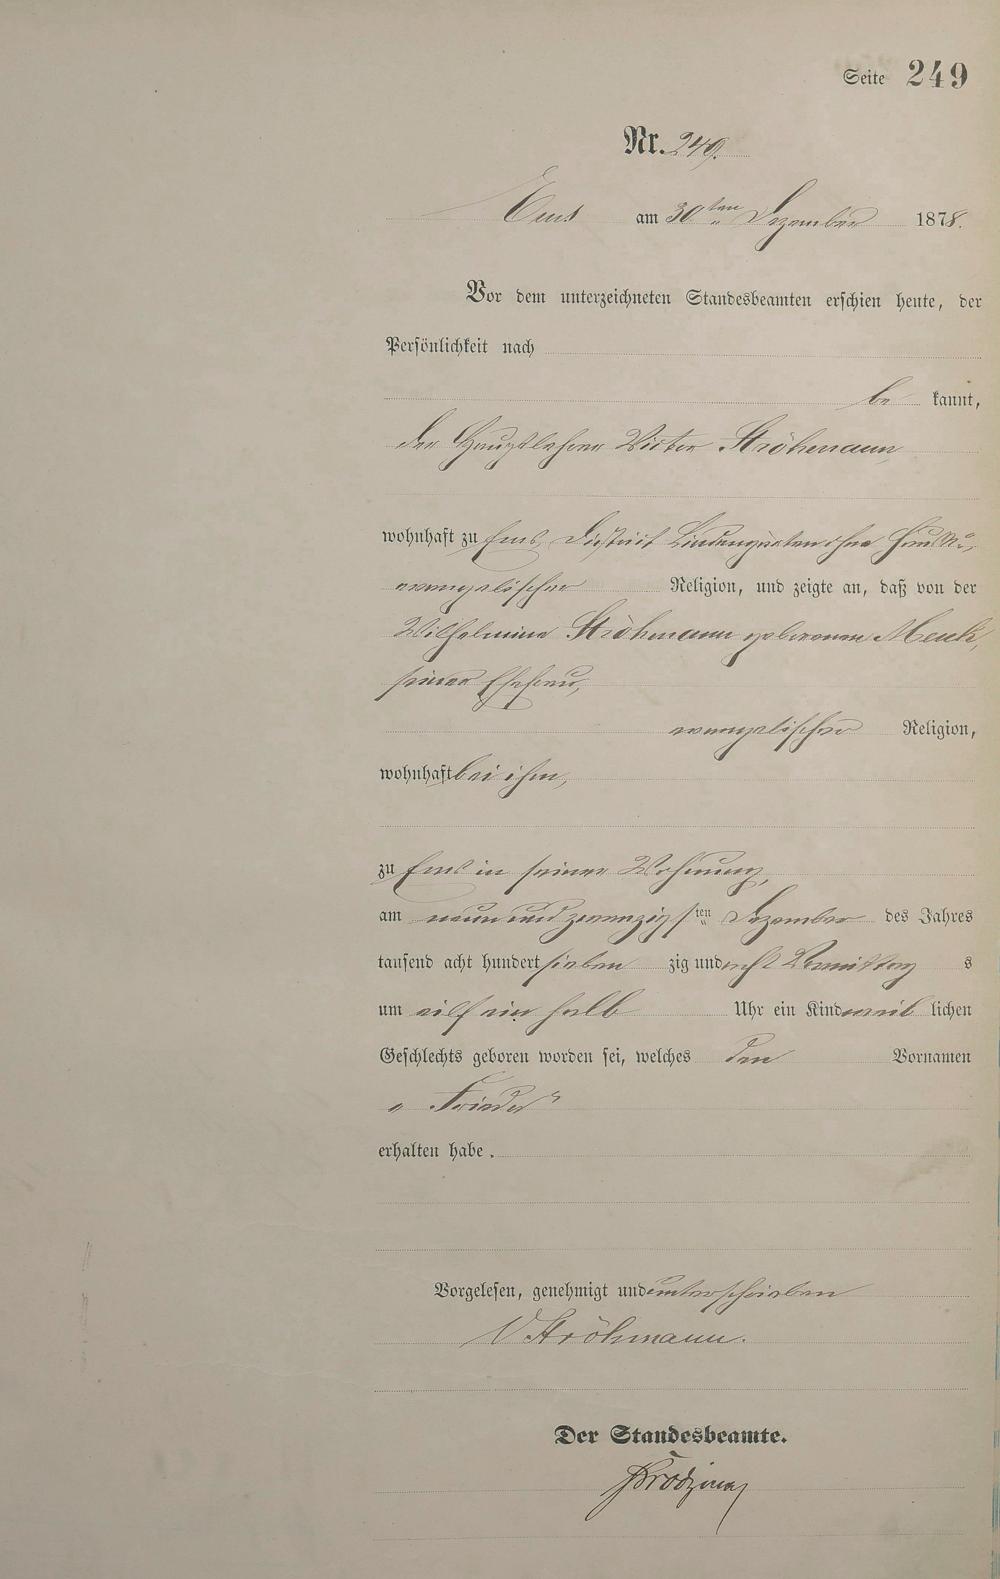 Seite 249
Nr. 249.
Ems am 30ten Dezember 1878.
Vor dem unterzeichneten Standesbeamten erschien heute, der
Persönlichkeit nach
be kannt,
der Hauptlehrer Victor Ströhmann,
wohnhaft zu Ems, District Lindengarten ohne Haus Nr.,
evangelischer Religion, und zeigte an, daß von der
Wilhelmine Ströhmann geborenen Menk,
seiner Ehefrau,
evangelischer Religion,
wohnhaft bei ihm,
zu Ems in seiner Wohnung,
am neun und zwanzigsten Dezember des Jahres
tausend acht hundert sieben zig und acht Vormittag s
um eilf ein halb Uhr ein Kind weib lichen
Geschlechts geboren worden sei, welches den Vornamen
„Frieda"
erhalten habe.
Vorgelesen, genehmigt und unterschrieben
V Ströhmann.
Der Standesbeamte.